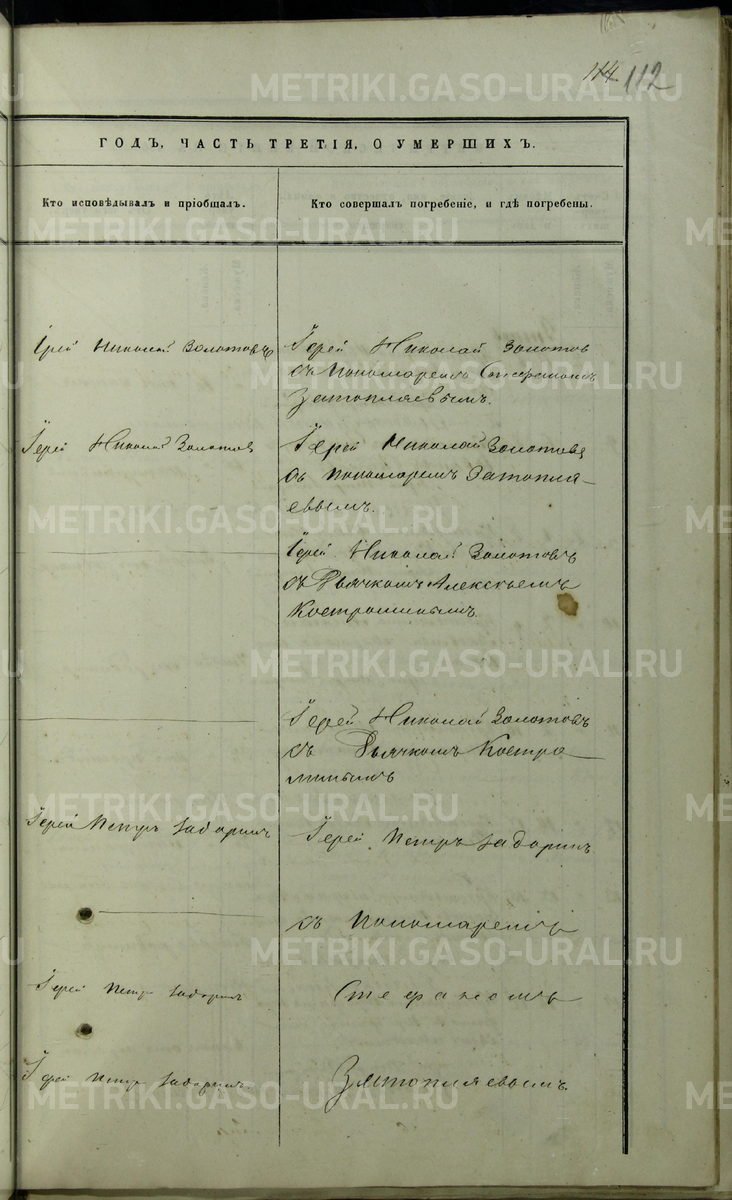 114 112
ГОДЪ, ЧАСТЬ ТРЕТІЯ, О УМЕРШИХЪ.
Кто исповѣдывалъ и пріобщалъ.
Кто совершалъ погребеніе, и гдѣ погребены.
Іерей Николай Золотовъ
Іерей Николай Золотов
съ Пономаремъ Стефаномъ
Затопляевымъ.
Іерей Николай Золотов
Іерей Николай Золотовъ
съ Пономаремъ Затопля-
евымъ.
Іерей Николай Золотовъ
съ Дьячкомъ Алексѣемъ
Костроминымъ.
Іерей Николай Золотовъ
съ Дьячкомъ Костро-
минымъ
Іерей Петръ Задоринъ
Іерей Петръ Задоринъ
съ Пономаремъ
Іерей Петръ Задоринъ
Стефаномъ
Іерей Петръ Задоринъ.
Затопляевымъ.
METRIKI.GASO-URAL.RU